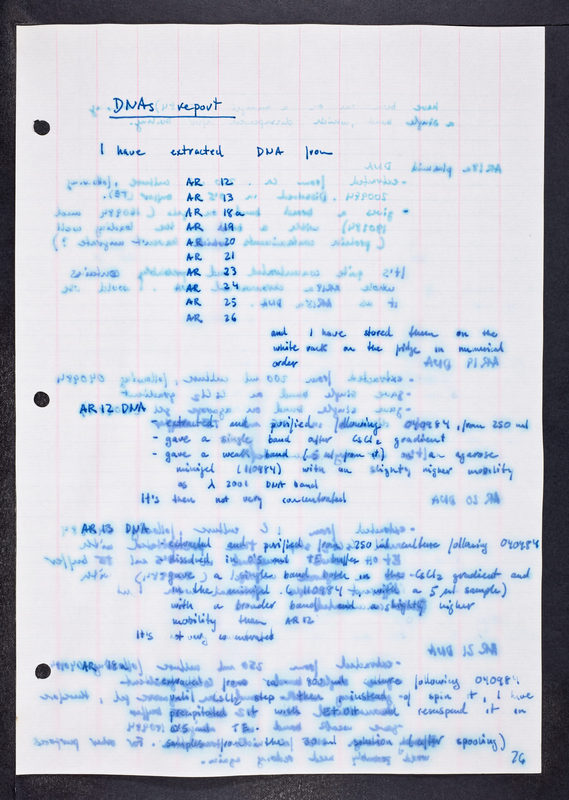 DNAs report
I have extracted DNA from
AR 12
AR 13
AR 18a
AR 19
AR 20
AR 21
AR 23
AR 24
AR 25
AR 26
and I have stored them on the
white rack on the fridge in numerical
order
AR 12 DNA
- extracted and purified following 040984, from 250 ml
- gave a single band after CsCl2 gradient
- gave a weak band (5 µl from it) on an agarose
minigel (110984) with an slightly higher mobility
as λ 2001 DNA band
It's then not very concentrated
AR 13 DNA
extracted and purified from 250 ml culture following 040984
dissolved in 0.5 ml TE buffer
gave a single band both in the CsCl2 gradient and
in the minigel (110984 with a 5 µl sample)
with a broader band and a slightly higher
mobility than AR12
It's not very concentrated
AR 18a DNA
extracted from culture following 040984
until CsCl2 step. Then, instead of spin it, I have
precipitated it with EtOH and resuspend it in
0.5 ml TE.
(after spooling)
26